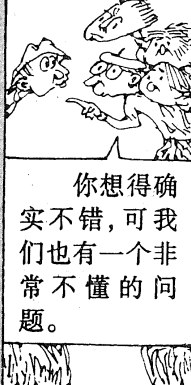 你想得确
实不错，可我
们也有一个非
常不懂的问
题。